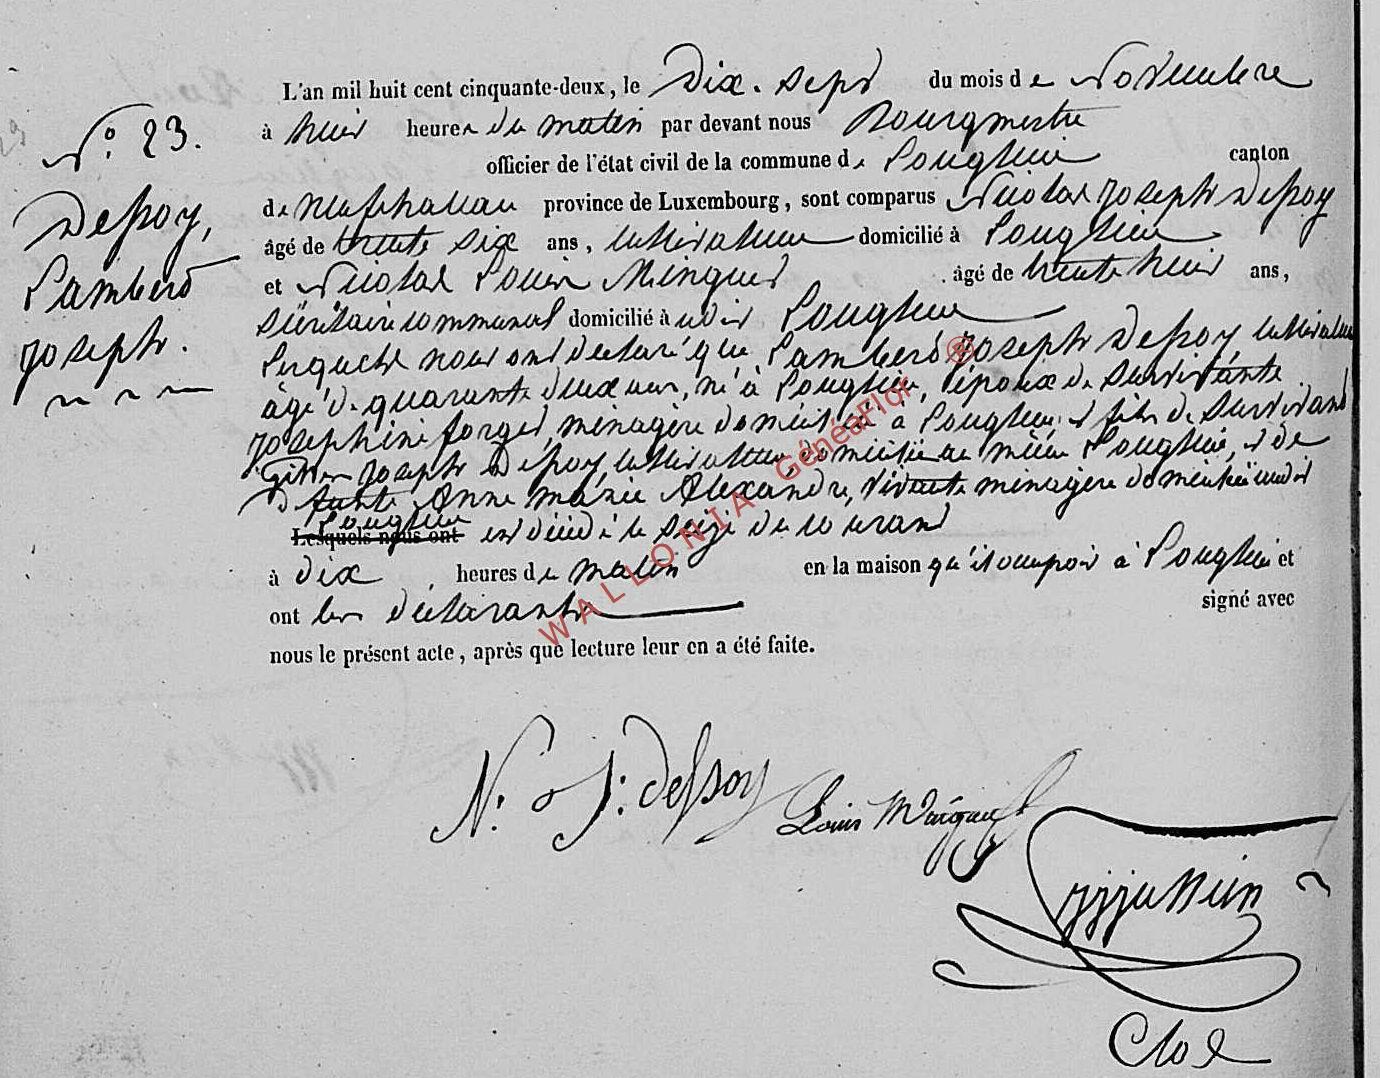 N.° 23.
Dessoy,
Lambert
Joseph.
L'an mil huit cent cinquante-deux, le Dix-sept du mois de Novembre
à huit heures du matin par devant nous Bourgmestre
officier de l'état civil de la commune de Longlier canton
de Neufchateau province de Luxembourg, sont comparus Nicolas Joseph Dessoy
âgé de trente six ans, cultivateur domicilié à Longlier
et Nicolas Louis Minguet âgé de trente huit ans,
secrétaire communal domicilié à udit Longlier
Lesquels nous ont declaré que Lambert Joseph Dessoy cultivateur
âgé de quarante deux ans, né à Longlier, époux de survivante
Josephine forget, ménagère domicilié à Longlier, et fils de survivant
Joseph Dessoy cultivateur, domicilié au même Longlier, et de
défunte Anne marie Alexandre, vivante ménagère domiciliée audit
Longlier
Lesquels nous ont est décédé le seize du courant
à dix heures du matin en la maison qu'il occupoit à Longlier et
ont les déclarants signé avec
nous le présent acte, après que lecture leur en a été faite.
N: J: Dessoy
Louis Minguet
Clos
WALLONIA GénéaFlor ®